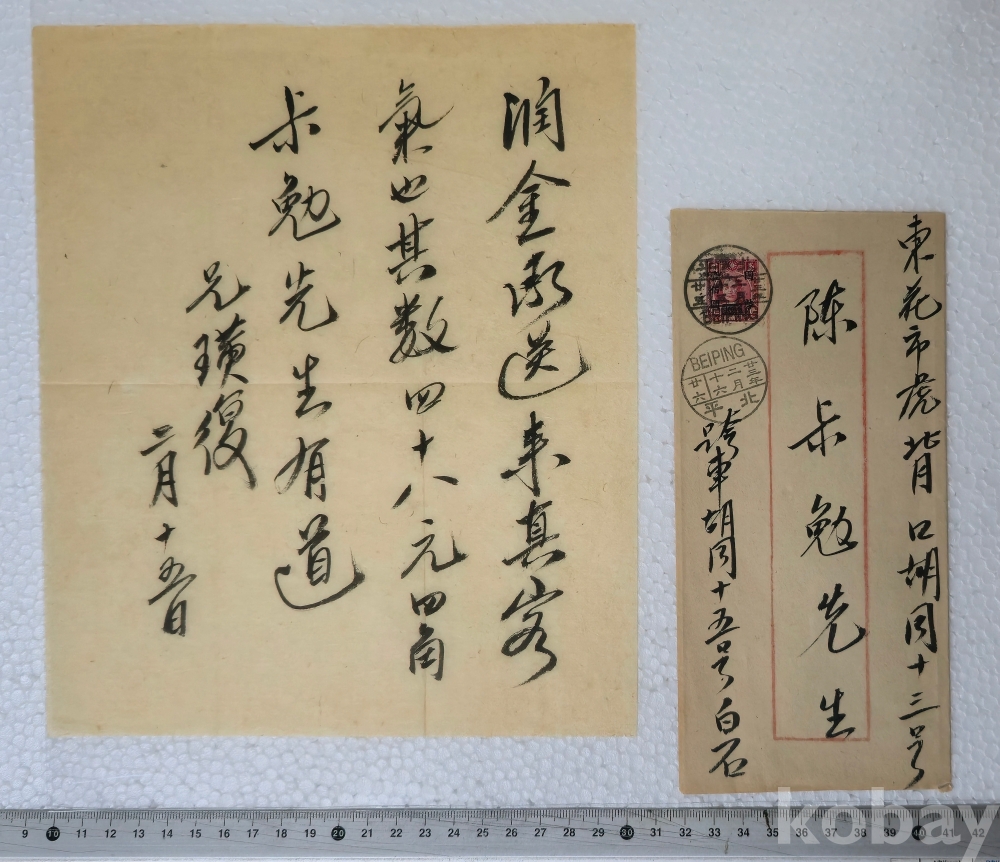 润金承送来真客
氣也其数四十八元四角
尗勉先生有道
兄璜復
二月十五日
東花市虎背口胡同十三号
陳尗勉先生
跨車胡同十五号白石
BEIPING
廿三年
十二月
廿六
北平
kobay
9 10 11 12 13 14 15 16 17 18 19 20 21 22 23 24 25 26 27 28 29 30 31 32 33 34 35 36 37 38 39 40 41 42